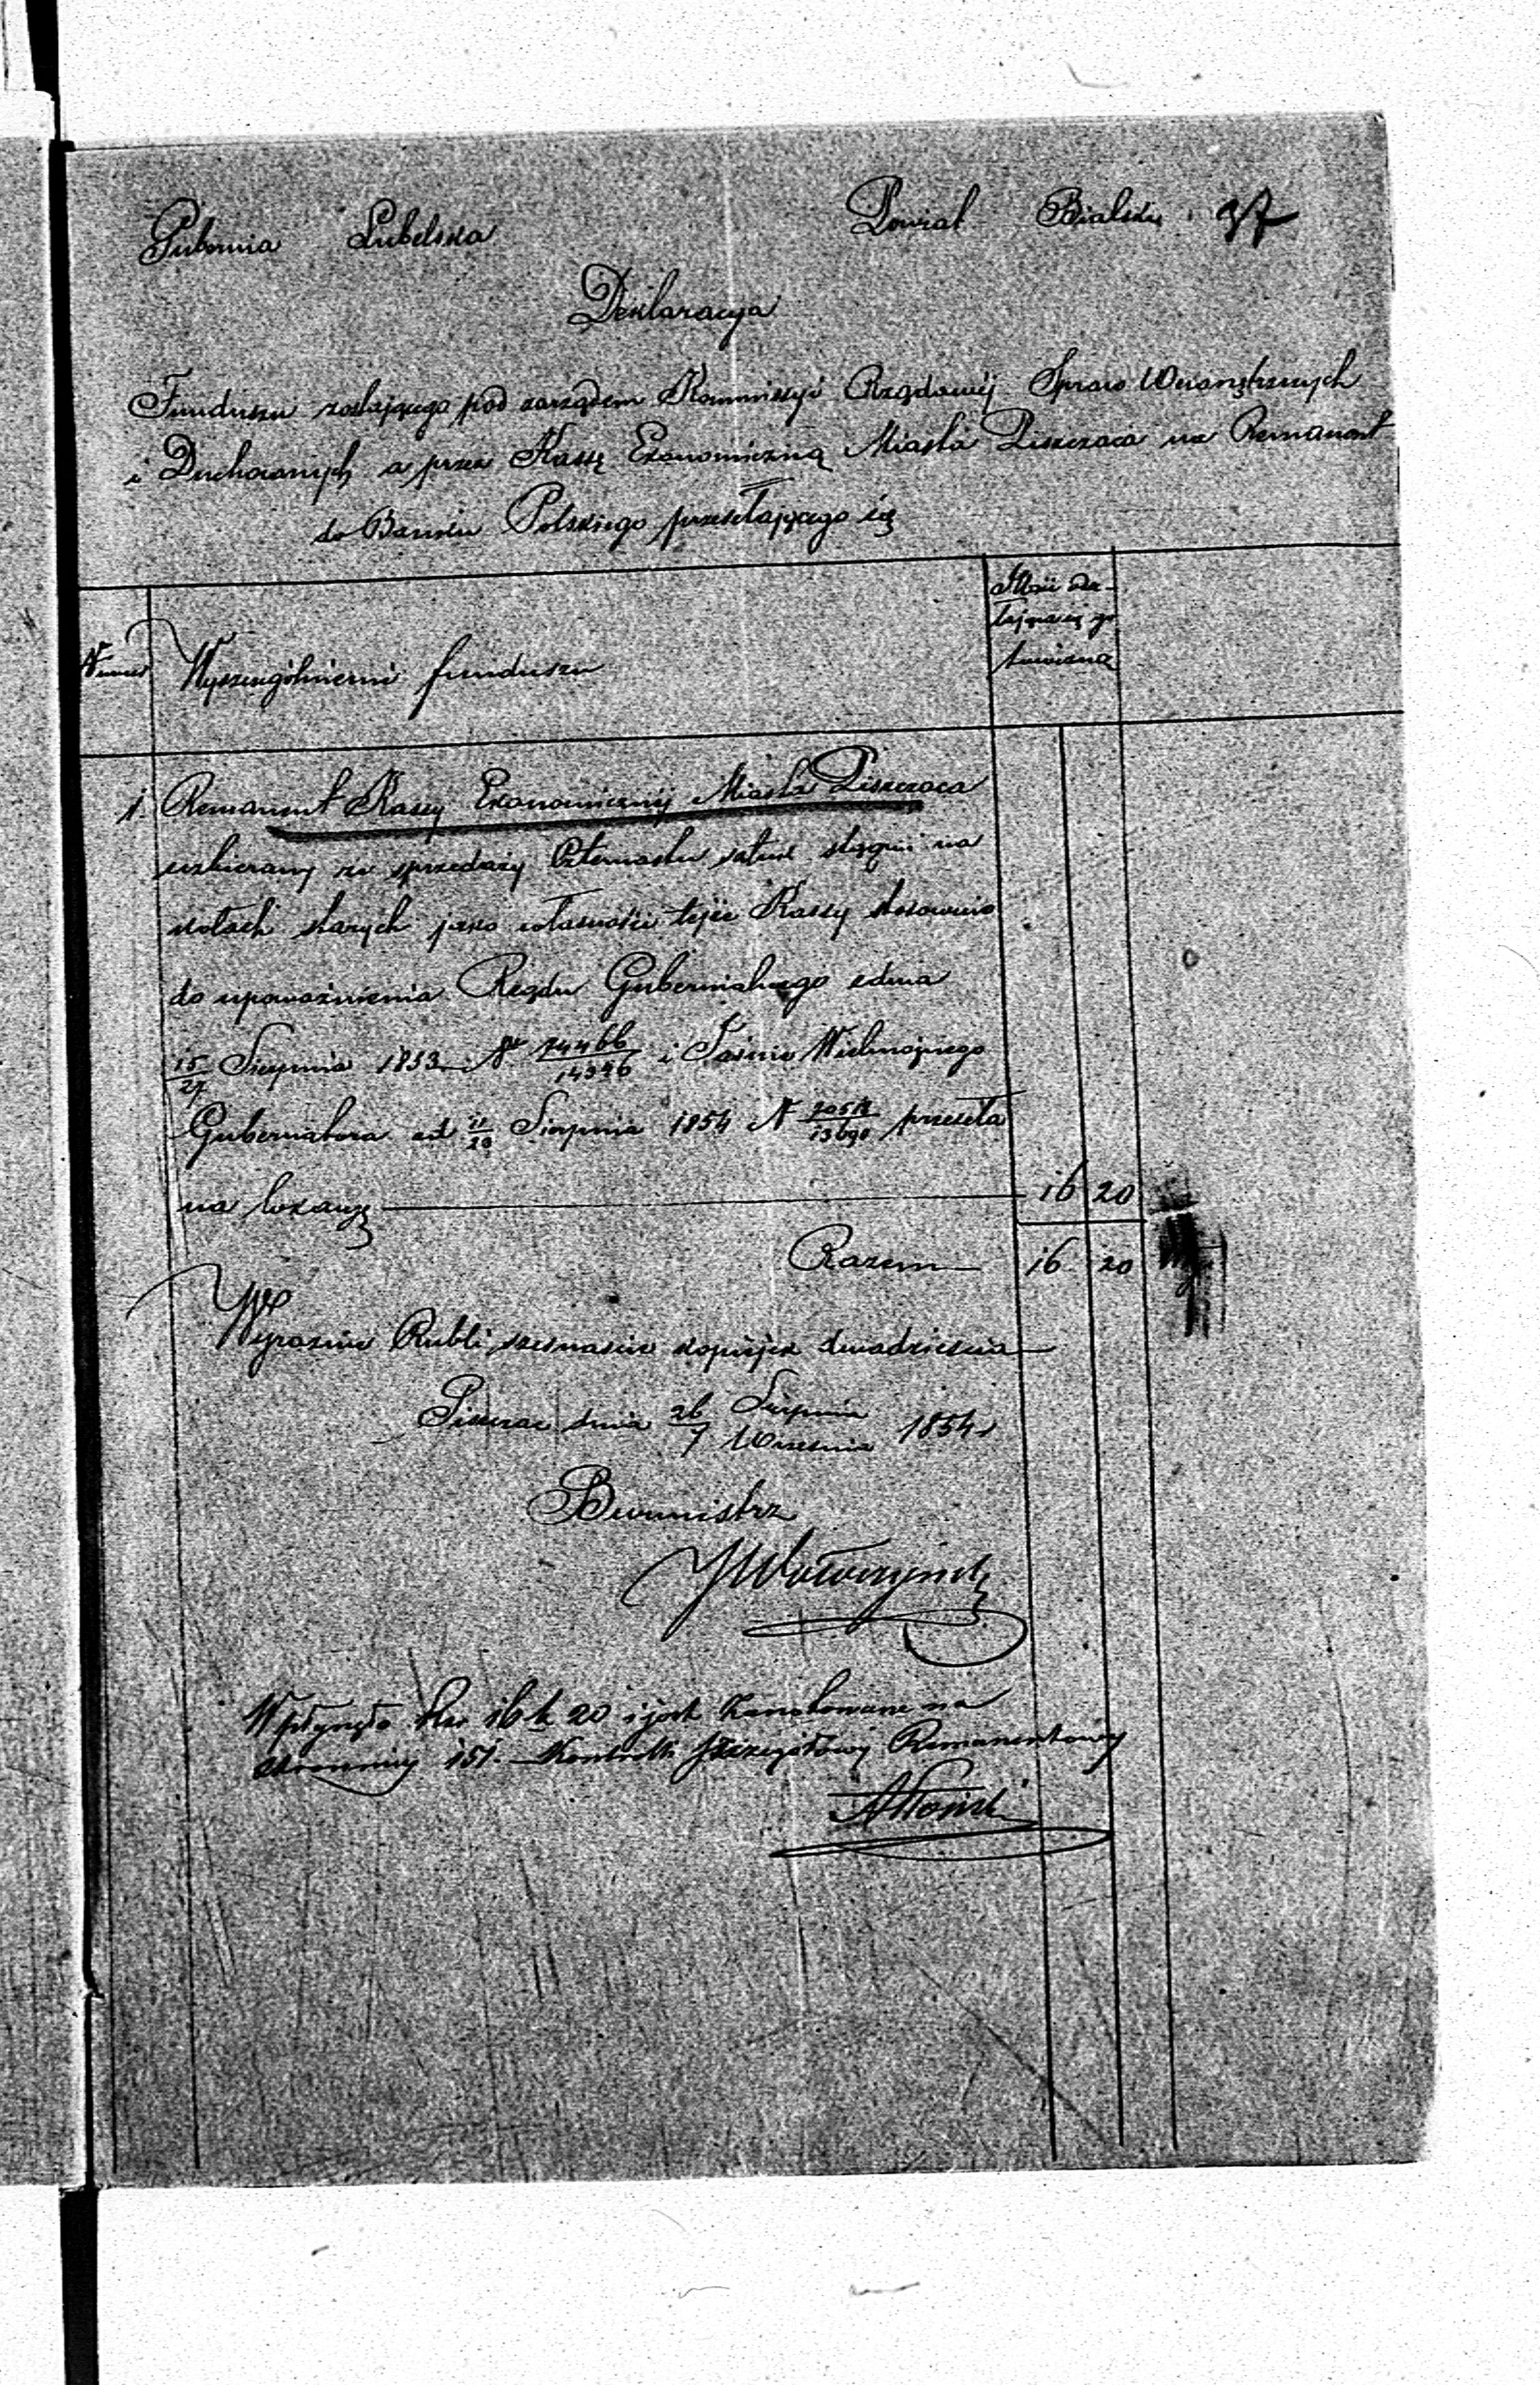 Gubernia Lubelska Powiat Bialski 97
Deklaracya
Funduszu zostającego pod zarządem Kommissyi Rządowéj Spraw Wewnętrznych
i Duchownych a przez Kassę Ekonomiczną Miasta Piszczaca na Remanent
do Banku Polskiego przesełającego się
Numer
Wyszczególnienie funduszu
tającą się go
towizną
1. Remanent Kassy Ekonomicznéj Miasta Piszczaca
uzbierany ze sprzedaży sztuk
starych jako własność tejże Kassy stosownie
do upoważnienia Rządu Gubernialnego z dnia
15/27 Sierpnia 1853 Nr 74466/14396 i Jaśnie Wielmożnego
Gubernatora od 11/23 Sierpnia 1854 N 20512/13690 przeseła
na lokacyę 16 20
Razem 16 20
Wyraźnie Rubli szesnaście kopiejek dwadzieścia
Piszczac dnia 26 Sierpnia / 7 Września 1854 r
Burmistrz
Wpłynęło Rsr 16 k 20 i jest zanotowane na
stronnicy 151. Kontrolli szczegółowéj Remanentowéj